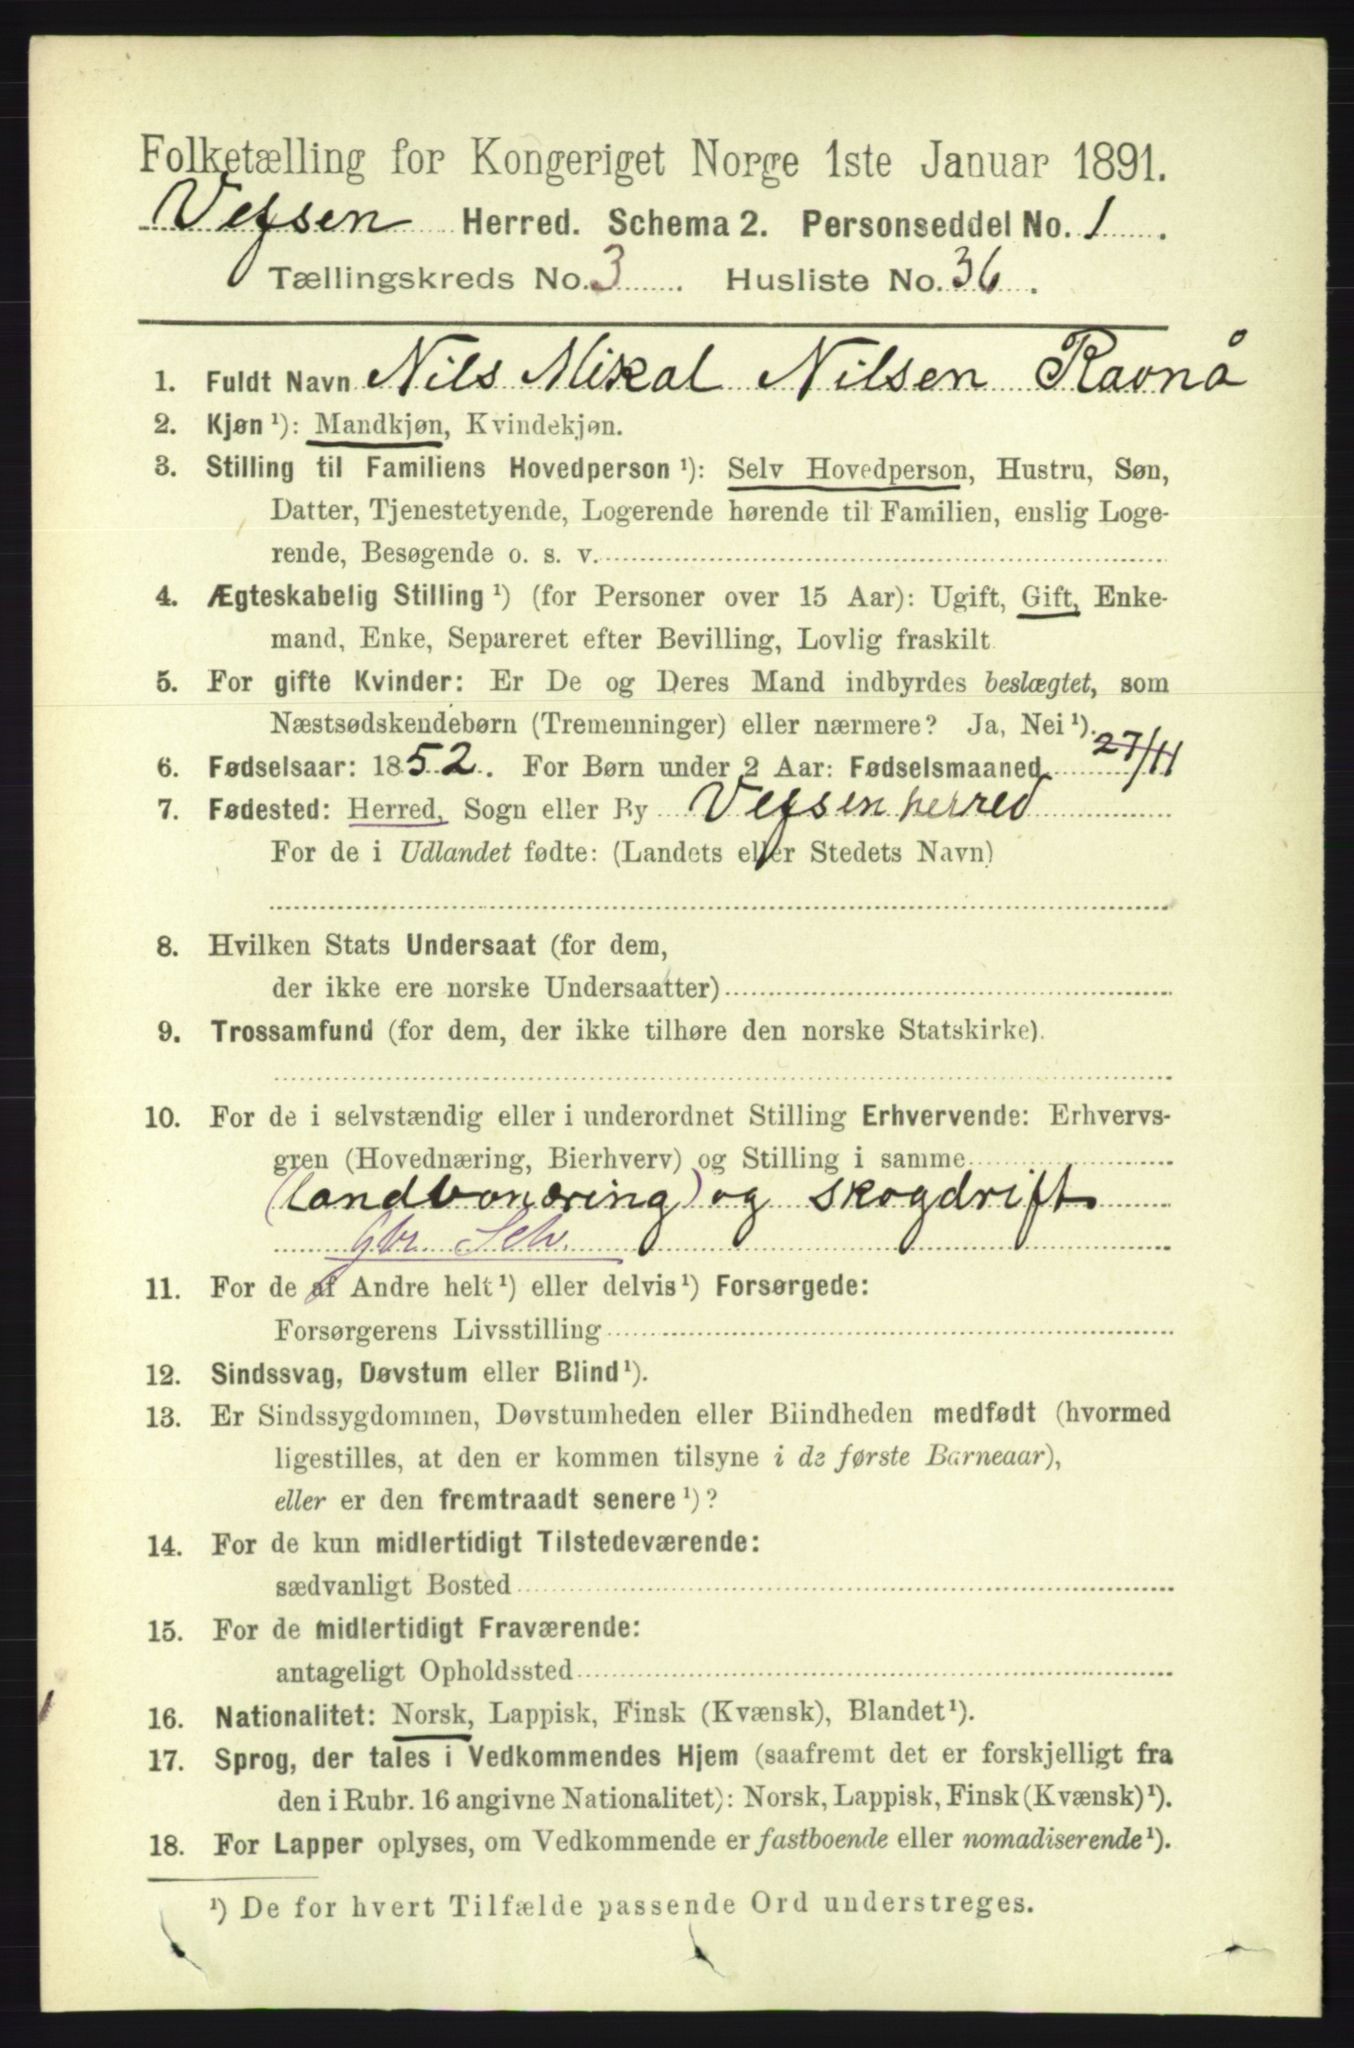 Folketælling for Kongeriget Norge 1ste Januar 1891.
Vefsen Herred. Schema 2. Personseddel No. 1.
Tællingskreds No. 3. Husliste No. 36.
1. Fuldt Navn Nils Mikal Nilsen Ravnå
2. Kjøn ¹): Mandkjøn, Kvindekjøn.
3. Stilling til Familiens Hovedperson ¹): Selv Hovedperson, Hustru, Søn,
Datter, Tjenestetyende, Logerende hørende til Familien, enslig Loge-
rende, Besøgende o. s. v.
4. Ægteskabelig Stilling ¹) (for Personer over 15 Aar): Ugift, Gift, Enke-
mand, Enke, Separeret efter Bevilling, Lovlig fraskilt
5. For gifte Kvinder: Er De og Deres Mand indbyrdes beslægtet, som
Næstsødskendebørn (Tremenninger) eller nærmere? Ja, Nei ¹).
6. Fødselsaar: 1852. For Børn under 2 Aar: Fødselsmaaned 27/11
7. Fødested: Herred, Sogn eller By Vefsen herred
For de i Udlandet fødte: (Landets eller Stedets Navn)
8. Hvilken Stats Undersaat (for dem,
der ikke ere norske Undersaatter)
9. Trossamfund (for dem, der ikke tilhøre den norske Statskirke).
10. For de i selvstændig eller i underordnet Stilling Erhvervende: Erhvervs-
gren (Hovednæring, Bierhverv) og Stilling i samme
(landbonæring) og skogdrift
gbr. Selv.
11. For de af Andre helt ¹) eller delvis ¹) Forsørgede:
Forsørgerens Livsstilling
12. Sindssvag, Døvstum eller Blind ¹).
13. Er Sindssygdommen, Døvstumheden eller Blindheden medfødt (hvormed
ligestilles, at den er kommen tilsyne i de første Barneaar),
eller er den fremtraadt senere ¹)?
14. For de kun midlertidigt Tilstedeværende:
sædvanligt Bosted
15. For de midlertidigt Fraværende:
antageligt Opholdssted
16. Nationalitet: Norsk, Lappisk, Finsk (Kvænsk), Blandet ¹).
17. Sprog, der tales i Vedkommendes Hjem (saafremt det er forskjelligt fra
den i Rubr. 16 angivne Nationalitet): Norsk, Lappisk, Finsk (Kvænsk) ¹).
18. For Lapper oplyses, om Vedkommende er fastboende eller nomadiserende ¹).
¹) De for hvert Tilfælde passende Ord understreges.